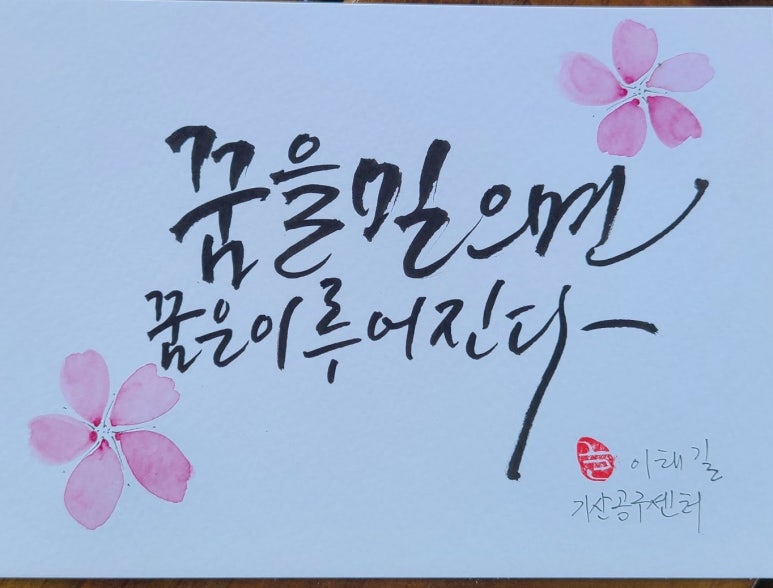 꿈을 밀으면
꿈은 이루어진다
이태길
기산공구센터